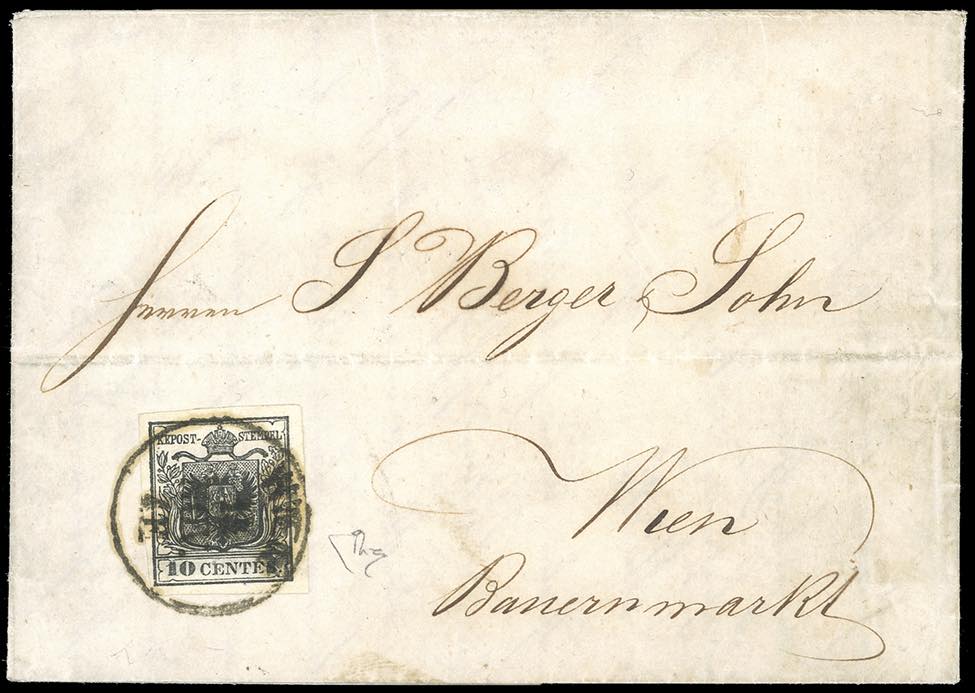 Herren S Berger & Sohn
KKPOST-STEMPEL
10 CENTES.
Wien
Bauernmarkt